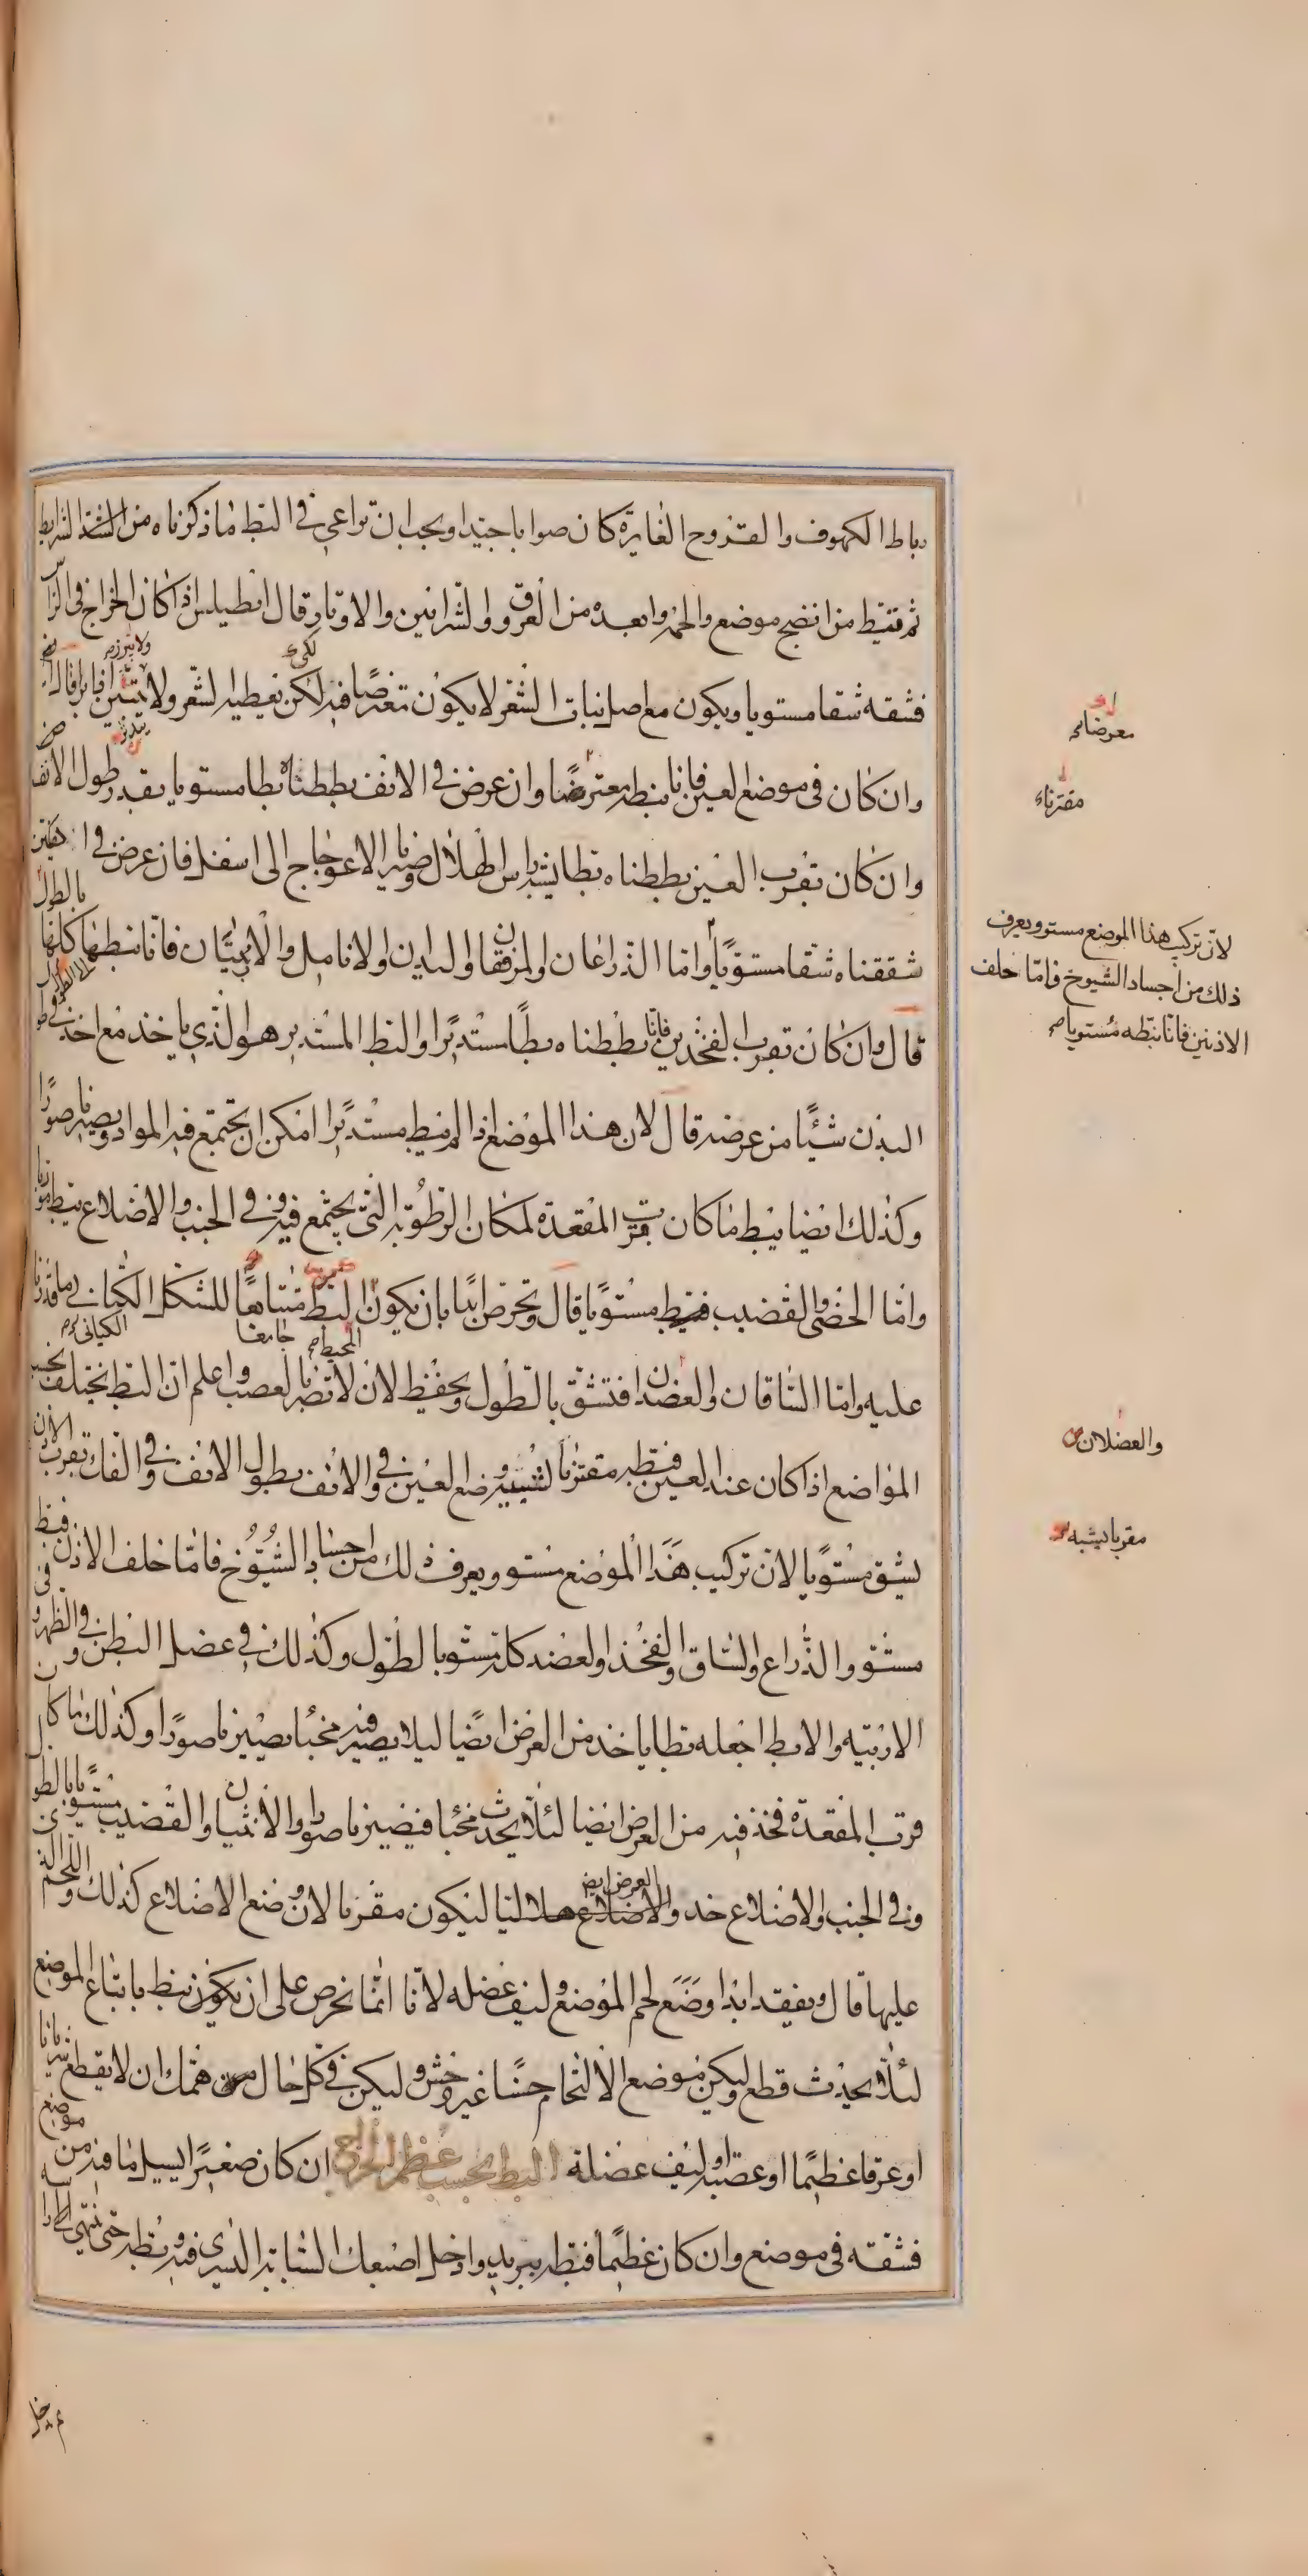 رباط الكهوف والقروح الغايرة كان صوابا جيدا ويجب ان تراعي في البط ما ذكرناه من الشرايط
ثم تبط من انضج موضع والحمه وابعده من العروق والشرائين والاوتار وقال انطيلس اذا كان الخراج في الراس
فشقه شقا مستويا ويكون مع اصل نبات الشعر لا يكون معترضا فيه لكن يغطيه الشعر ولا يتبين
وان كان في موضع العين فانا نبطه معترضا وان عرض في الانف بططناه بطا مستويا بقدر طول الانف
وان كان بقرب العين بططناه بطا يشبه راس الهلال ونصير الاعوجاج الى اسفل فان عرض في
شققناه شقا مستويا واما الذراعان والمرفقان واليدين والانامل والاربيتان فانا نبطها كلها بالطول
قال وان كان بقرب الفخذين فانا بططناه بطا مستديرا والبط المستدير هو الذي ياخذ مع اخذه في
البدن شيئا من عرضه قال لان هذا الموضع اذا لم نبط مستديرا امكن ان يجتمع فيه المواد ويصير ناصورا
وكذلك ايضا نبط ما كان بقرب المقعدة لمكان الرطوبة التي يجتمع فيه وفي الجنب والاضلاع نبط
واما الخصى والقضيب فنبط مستويا قال وتحرص ابدا بان يكون البط متتابعا للشكل الكتاني
عليه واما الساقان والعضدان فتشق بالطول وتحفظ لان لا تضر بالعصب واعلم ان البط يختلف بحسب
المواضع اذا كان عند العين فبطه مقترنا لتشبيه وضع العين وفي الانف بطول الانف وفي الفك بقرب الاذن
يشق مستويا لان تركيب هذا الموضع مستو ويعرف ذلك من اجساد الشيوخ فاما خلف الاذن فبط
مستو والذراع والساق والفخذ والعضد كله مستو بالطول وكذلك في عضل البطن والظهر وفي
الاربيه والابط اجعله بطا ياخذ من العرض ايضا ليلا يصير فيه مخبئا يصير ناصورا وكذلك ما كان
قرب المقعدة فخذ فيه من العرض ايضا لئلا يحدث مخبا فيصير ناصورا والانثيان والقضيب مستويا بالطول
وفي الجنب والاضلاع خذ والاضلاع هلاليا ليكون مقرنا لان وضع الاضلاع كذلك واللحم الذي
عليها قال ويفقد ابدا وضع لحم الموضع وليف عضله لانا انما نحرص على ان يكون نبط باتباع الموضع
لئلا يحدث قطع وليكن موضع الالتحام حسنا غير وحش وليكن في كل حال من همتك ان لا يقطع شريانا
او عرقا عظيما او عصبه او ليف عضلة البط بحسب عظم الخراج ان كان صغيرا يسيل ما فيه من موضع
فشقه في موضع وان كان عظيما فبطه ببريد وادخل اصبعك السبابة اليسرى فيه وبطه حتى ينتهي الى
معرضا
مقترنا
لان تركيب هذا الموضع مستو ويعرف
ذلك من اجساد الشيوخ فاما خلف
الاذنين فانا نبطه مستويا
والعضلان
مقربا يشبه